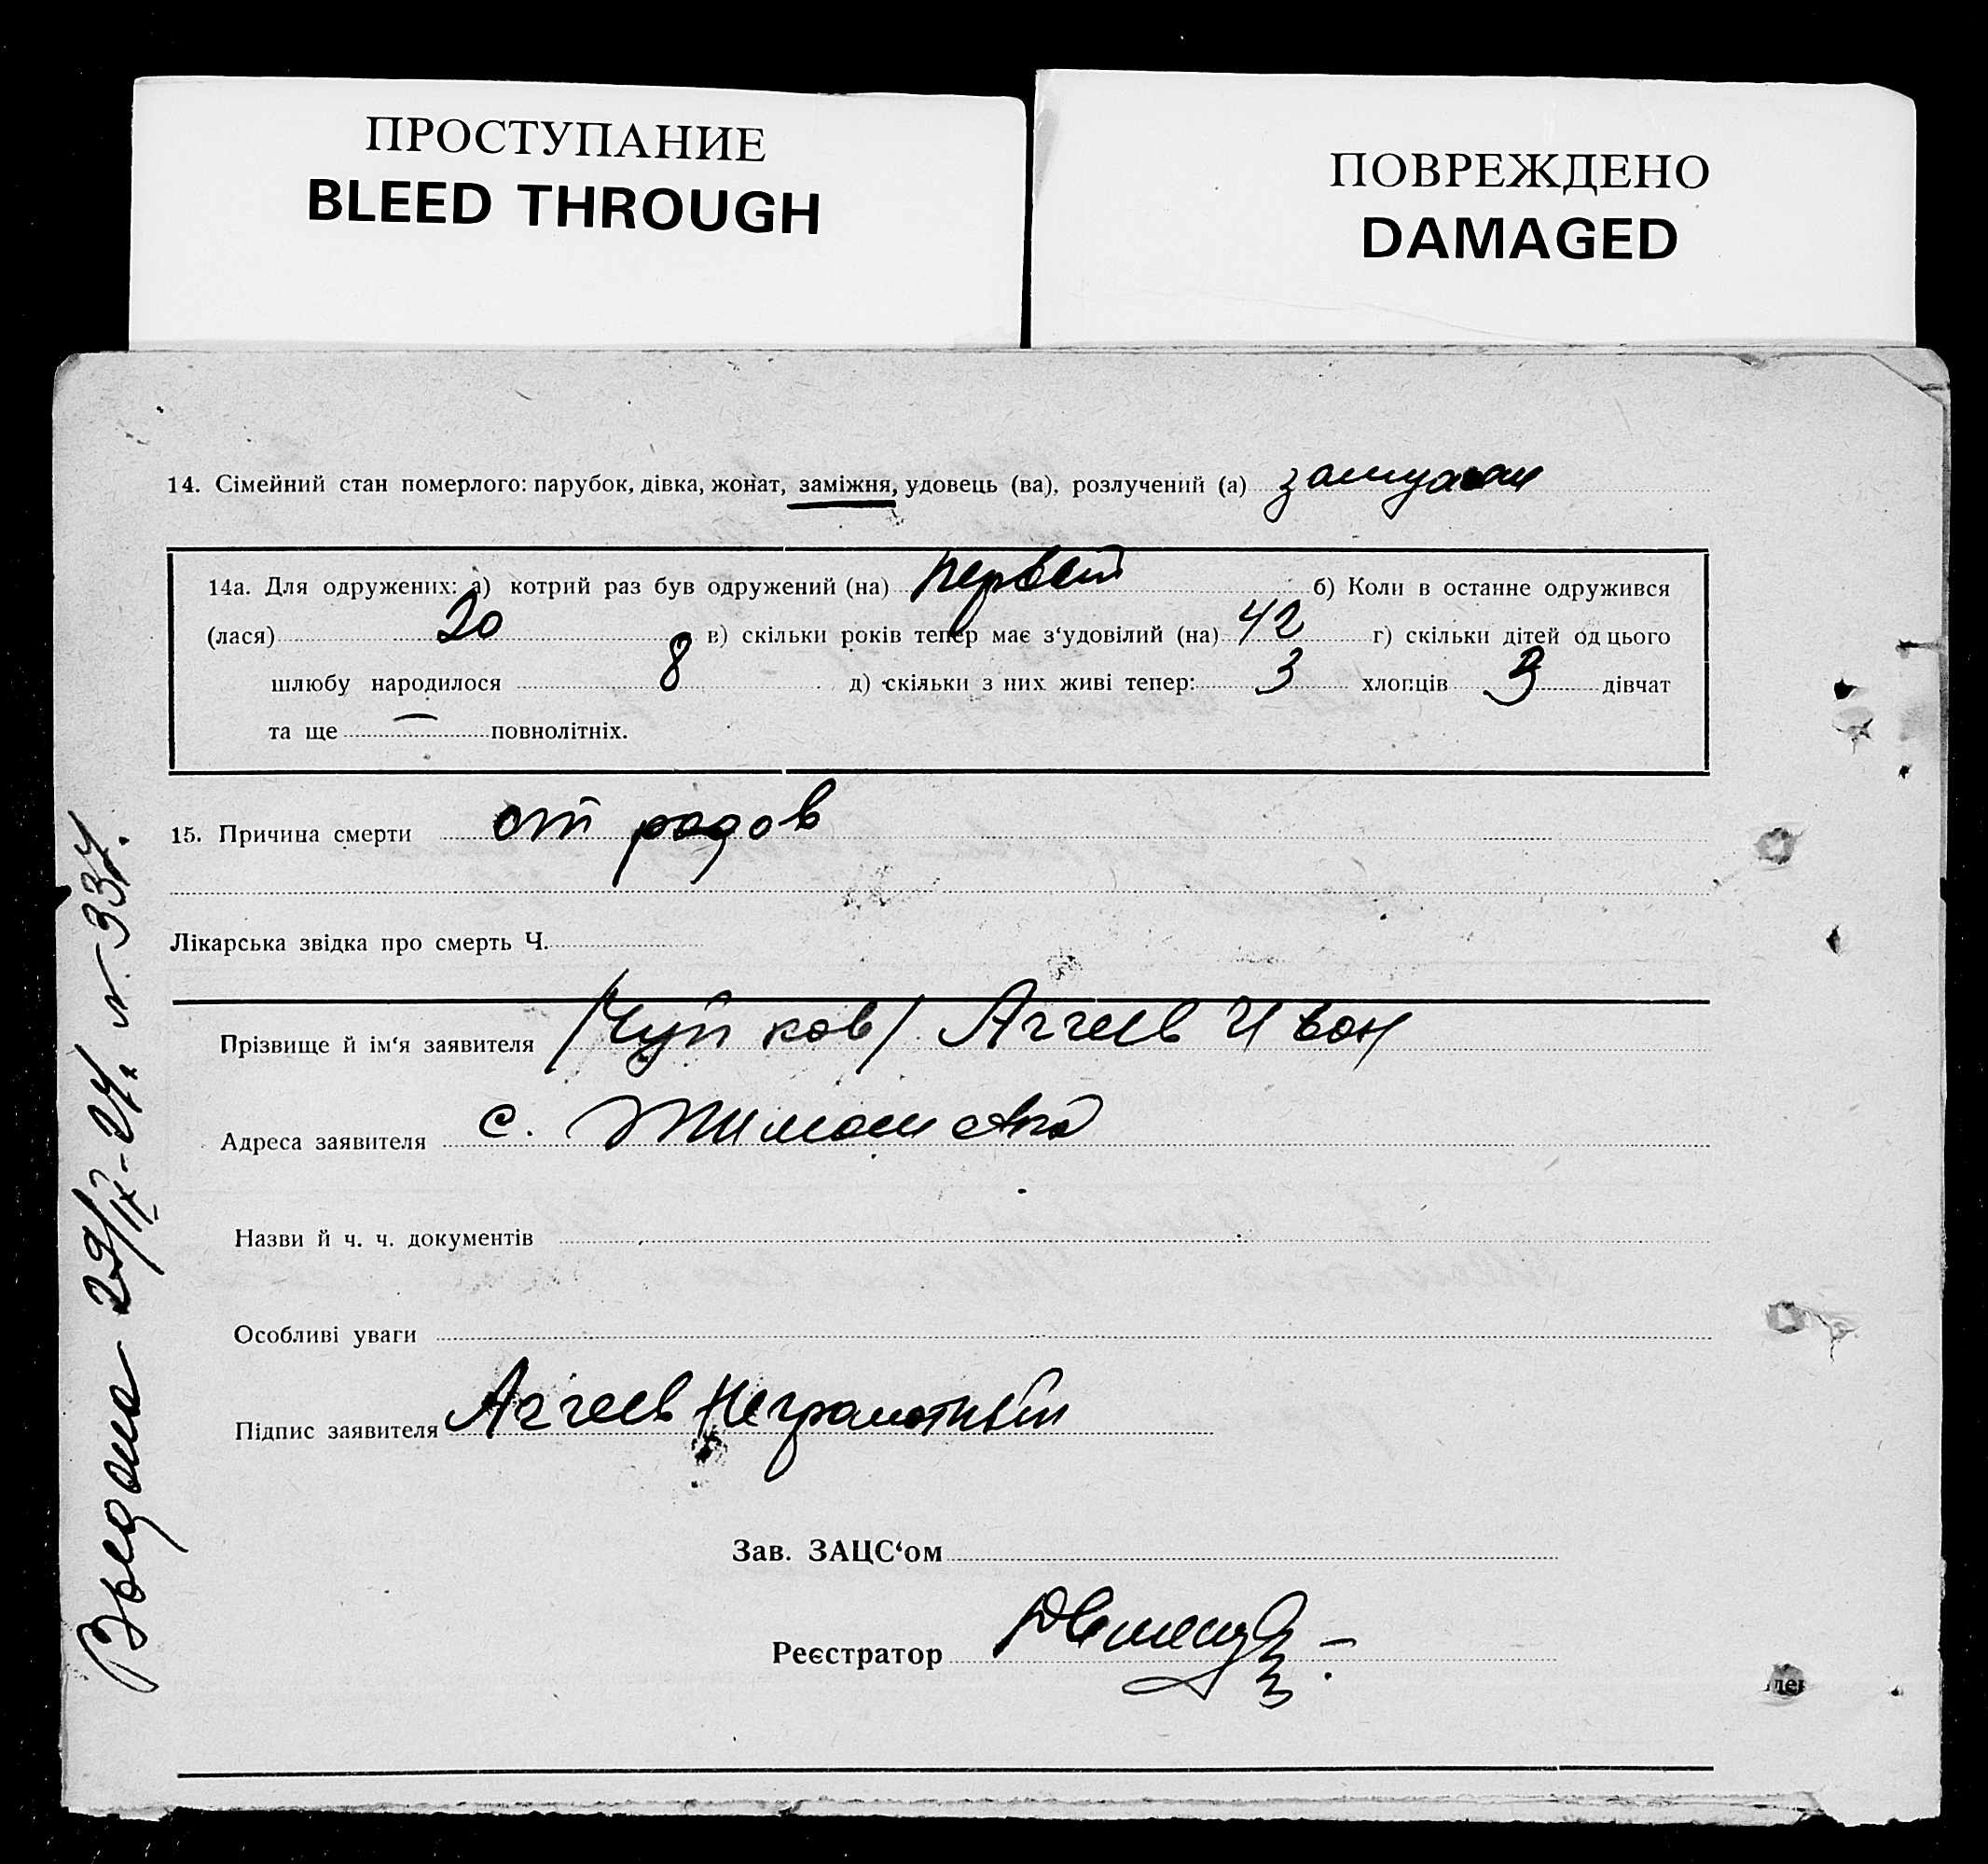 ПРОСТУПАНИЕ
BLEED THROUGH
ПОВРЕЖДЕНО
DAMAGED
14. Сімейний стан померлого: парубок, дівка, жонат, заміжня, удовець (ва), розлучений (а)
14а. Для одружених: а) котрий раз був одружений (на) первый б) Коли в останнє одружився
(лася) 20 в) скільки років тепер має з‘удовілий (на) 42 г) скільки дітей од цього
шлюбу народилося 8 д) скільки з них живі тепер: 3 хлопців 3 дівчат
та ще — повнолітніх.
15. Причина смерти от радов
Лікарська звідка про смерть Ч.
Прізвище й ім‘я заявителя /Чуйков/ Аггеев Иван
Адреса заявителя с.
Назви й ч. ч. документів
Особливі уваги
Підпис заявителя Аггеев Неграмотный
Зав. ЗАЦС‘ом
Реєстратор
Выдана 29/IX-24. № 334.